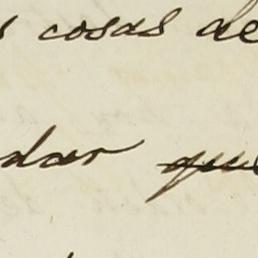 s cosas de
dar que